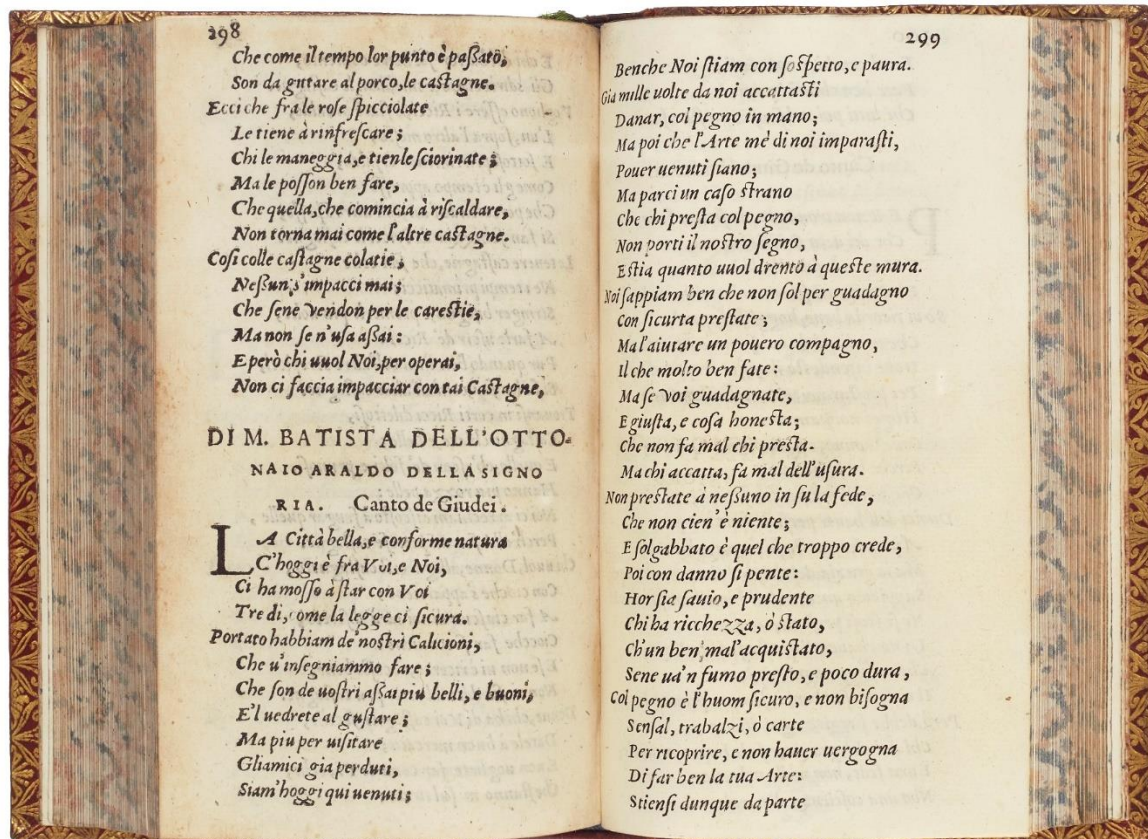 298
Che come il tempo lor punto è paſſato,
Son da gittare al porco, le caſtagne.
Ecci che fra le roſe ſpicciolate
Le tiene à rinfreſcare;
Chi le maneggia, e tienle ſciorinate;
Ma le poſſon ben fare,
Che quella, che comincia à riſcaldare,
Non torna mai come l'altre caſtagne.
Coſi colle caſtagne colatie,
Neſſun, s'impacci mai;
Che ſene vendon per le careſtie,
Ma non ſe n'uſa aſſai:
E però chi uuol Noi, per operai,
Non ci faccia impacciar con tai Caſtagne,
DI M. BATISTA DELL'OTTO-
NAIO ARALDO DELLA SIGNO
RIA. Canto de Giudei.
LA Città bella, e conforme natura
C'hoggi è fra Voi, e Noi,
Ci ha moſſo à ſtar con Voi
Tre di, come la legge ci ſicura.
Portato habbiam de' noſtri Calicioni,
Che u'inſegniammo fare;
Che ſon de uoſtri aſſai piu belli, e buoni,
E'l uedrete al guſtare;
Ma piu per uiſitare
Gliamici gia perduti,
Siam'hoggi qui uenuti;
299
Benche Noi ſtiam con ſoſpetto, e paura.
Gia mille uolte da noi accattaſti
Danar, col pegno in mano;
Ma poi che l'Arte mè di noi imparaſti,
Pouer uenuti ſiano;
Ma parci un caſo ſtrano
Che chi preſta col pegno,
Non porti il noſtro ſegno,
E ſtia quanto uuol drento à queſte mura.
Noi ſappiam ben che non ſol per guadagno
Con ſicurta preſtate;
Ma l'aiutare un pouero compagno,
Il che molto ben fate:
Ma ſe voi guadagnate,
E giuſta, e coſa honeſta;
Che non fa mal chi preſta.
Ma chi accatta, fa mal dell'uſura.
Non preſtate à neſſuno in ſu la fede,
Che non cien'è niente;
E ſolgabbato è quel che troppo crede,
Poi con danno ſi pente:
Hor ſia ſauio, e prudente
Chi ha ricchezza, ò ſtato,
Ch'un ben, mal'acquiſtato,
Sene ua'n fumo preſto, e poco dura,
Col pegno è l'huom ſicuro, e non biſogna
Senſal, trabalzi, ò carte
Per ricoprire, e non hauer uergogna
Di far ben la tua Arte:
Stienſi dunque da parte